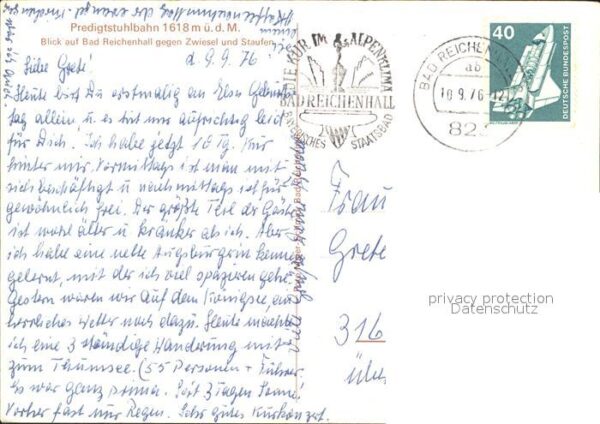 Predigtstuhlbahn 1618 m ü. d. M.
Blick auf Bad Reichenhall gegen Zwiesel und Staufen
d. 9.9.76
Liebe Grete!
Heute bist Du erstmalig an Elso Geburts
tag allein, u. es tut mir aufrichtig leid
für Dich. Ich habe jetzt 10 Tg. Kur
hinter mir. Vormittags ist man mit
sich beschäftigt u nachmittags ist für
gewöhnlich frei. Der größte Teil der Gäste
ist wohl älter u. kranker als ich. Aber
ich habe eine nette Augsburgerin kennen
gelernt, mit der ich viel spazieren gehe.
Gestern waren wir auf dem Königsee, ein
herrliches Wetter noch dazu. Heute machte
ich eine 3 stündige Wanderung mit
zum Thumsee. (55 Personen + Führer.
Es war ganz prima. Seit 3 Tagen Sonne
Vorher fast nur Regen. Sehr gutes Kurkonzert.
GUTE KUR IM ALPENKLIMA
BAD REICHENHALL
BAYERISCHES STAATSBAD
BAD REICHENHALL
10.9.76-12
823
40
DEUTSCHE BUNDESPOST
Frau
Grete
316
privacy protection
Datenschutz